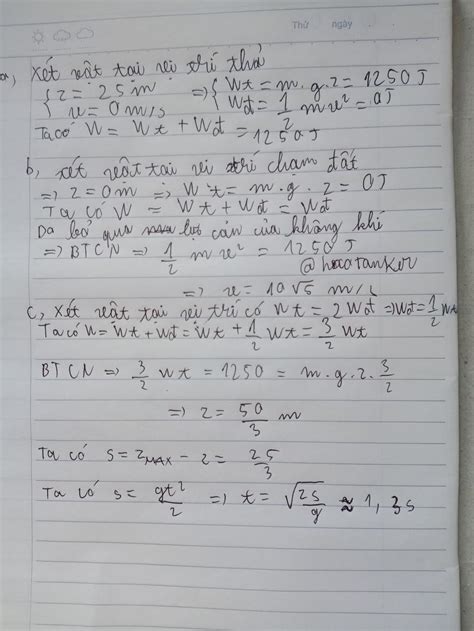 Thứ ngày
a, Xét vật tại vị trí thả
{ z = 25 m => { Wt = m.g.z = 1250 J
v = 0 m/s Wđ = 1/2 m v² = 0J
Ta có W = Wt + Wđ = 1250J
b, xét vật tại vị trí chạm đất
=> z = 0 m => Wt = m.g.z = 0J
Ta có W = Wt + Wđ = Wđ
Da bỏ qua lực cản của không khí
=> BTCN => 1/2 m v² = 1250 J
@haotanker
=> v = 10√5 m/s
c, Xét vật tại vị trí có Wt = 2Wđ => Wđ = 1/2 Wt
Ta có W = Wt + Wđ = Wt + 1/2 Wt = 3/2 Wt
BTCN => 3/2 Wt = 1250 = m.g.z.3/2
=> z = 50/3 m
Ta có s = zMAX - z = 25/3
Ta có s = gt²/2 => t = √2s/g ≈ 1,3s